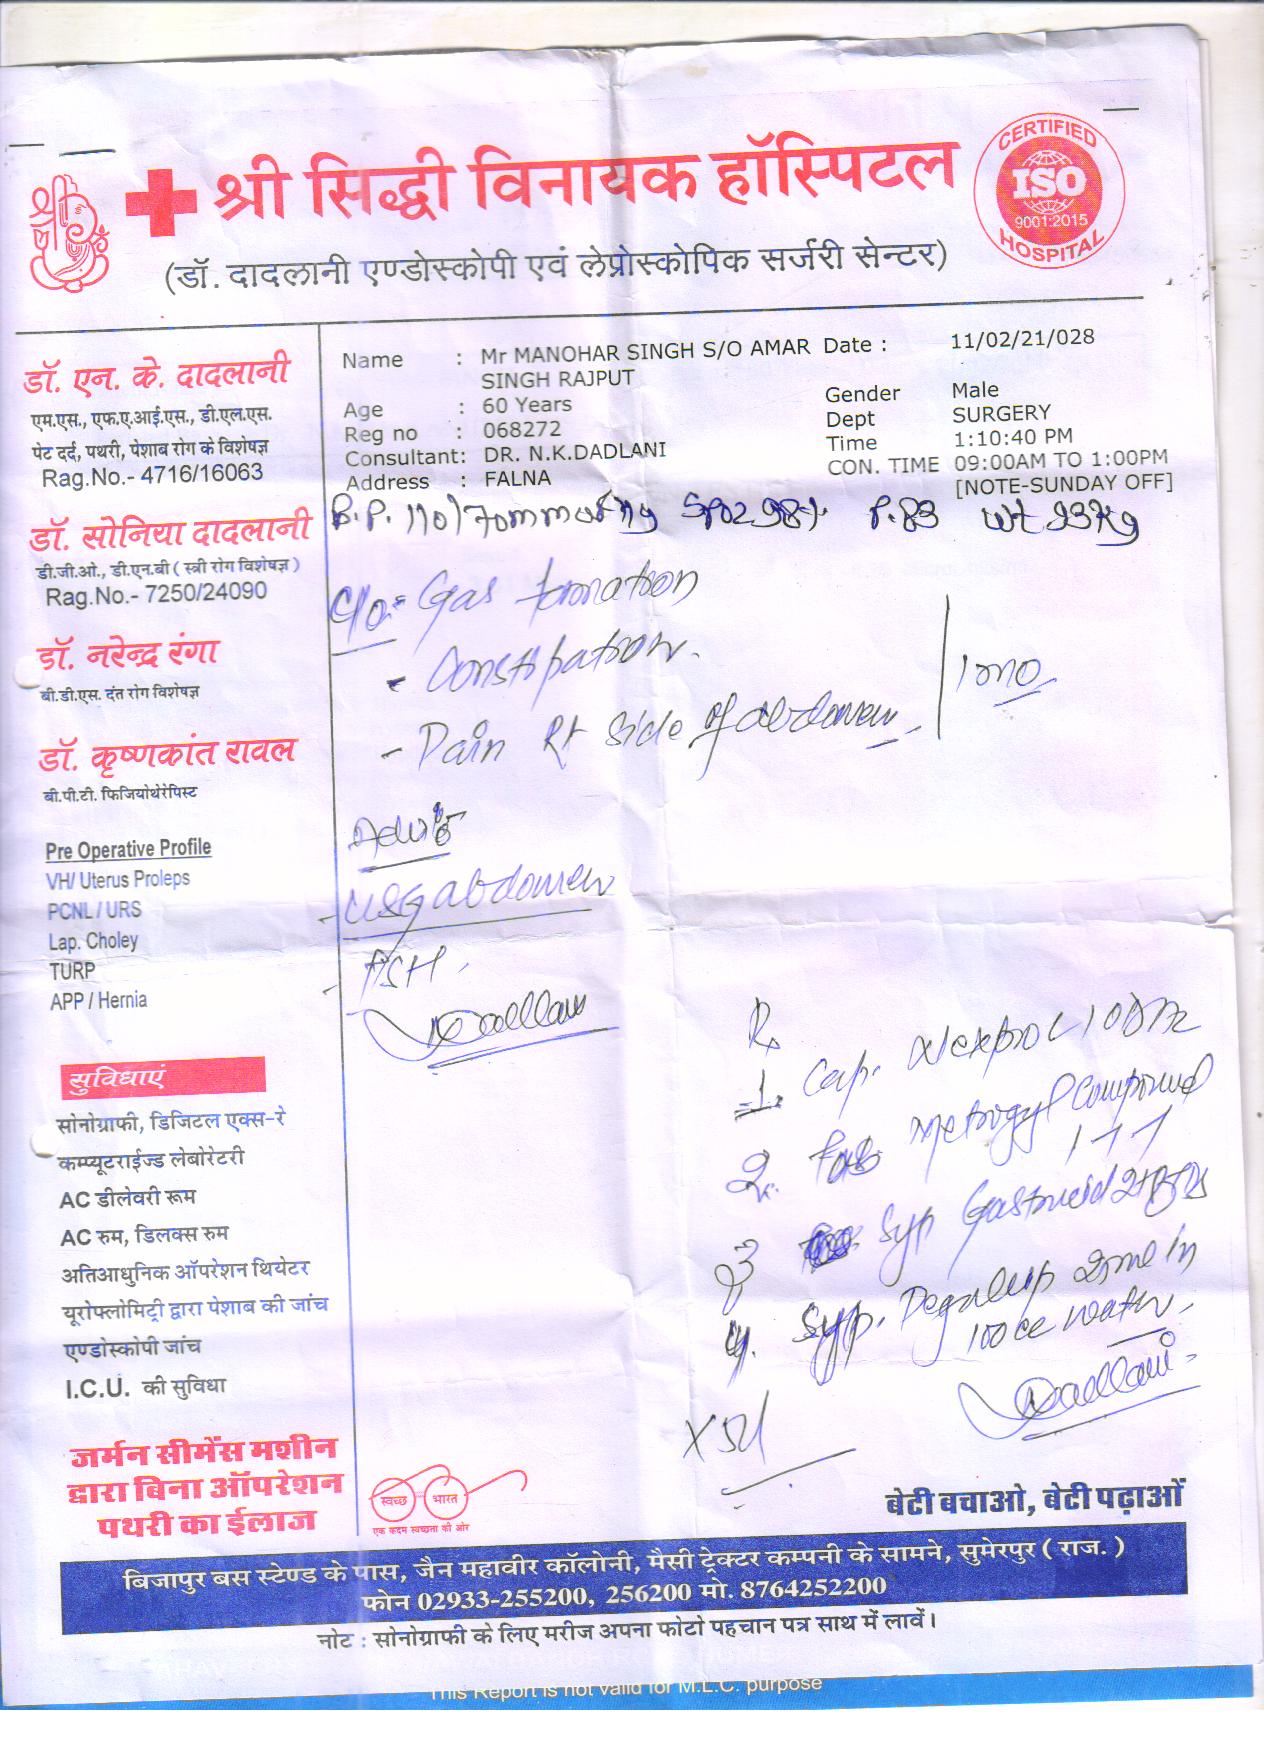 श्री सिद्धी विनायक हॉस्पिटल
(डॉ. दादलानी एण्डोस्कोपी एवं लेप्रोस्कोपिक सर्जरी सेन्टर)
CERTIFIED
ISO
9001:2015
HOSPITAL
डॉ. एन. के. दादलानी
एम.एस., एफ.ए.आई.एस., डी.एल.एस.
पेट दर्द, पथरी, पेशाब रोग के विशेषज्ञ
Rag.No.- 4716/16063
डॉ. सोनिया दादलानी
डी.जी.ओ., डी.एन.बी ( स्त्री रोग विशेषज्ञ )
Rag.No.- 7250/24090
डॉ. नरेन्द्र रंगा
बी.डी.एस. दंत रोग विशेषज्ञ
डॉ. कृष्णकांत रावल
बी.पी.टी. फिजियोथेरेपिस्ट
Pre Operative Profile
VH/ Uterus Proleps
PCNL / URS
Lap. Choley
TURP
APP / Hernia
सुविधाएं
सोनोग्राफी, डिजिटल एक्स-रे
कम्प्यूटराईज्ड लेबोरेटरी
AC डीलेवरी रूम
AC रुम, डिलक्स रुम
अतिआधुनिक ऑपरेशन थियेटर
यूरोफ्लोमिट्री द्वारा पेशाब की जांच
एण्डोस्कोपी जांच
I.C.U. की सुविधा
जर्मन सीमेंस मशीन
द्वारा बिना ऑपरेशन
पथरी का ईलाज
Name : Mr MANOHAR SINGH S/O AMAR SINGH RAJPUT
Date : 11/02/21/028
Age : 60 Years
Gender Male
Reg no : 068272
Dept SURGERY
Consultant: DR. N.K.DADLANI
Time 1:10:40 PM
Address : FALNA
CON. TIME 09:00AM TO 1:00PM
[NOTE-SUNDAY OFF]
B.P. 110/70mm of Hg SPO2 98% P.83 Wt 53Kg
C/o - Gas formation
- Constipation
- Pain Rt side of abdomen
1 mo
Advis
- USG abdomen
Dadlani
R
1. Cap.
2. Tab Metrogyl Compound
1-1-1
3 Syp
4. Syp. 2ml in
100cc water
Dadlani
X 5d
स्वच्छ भारत
एक कदम स्वच्छता की ओर
बेटी बचाओ, बेटी पढ़ाओं
बिजापुर बस स्टेण्ड के पास, जैन महावीर कॉलोनी, मैसी ट्रेक्टर कम्पनी के सामने, सुमेरपुर ( राज. )
फोन 02933-255200, 256200 मो. 8764252200
नोट : सोनोग्राफी के लिए मरीज अपना फोटो पहचान पत्र साथ में लावें।
This Report is not valid for M.L.C. purpose